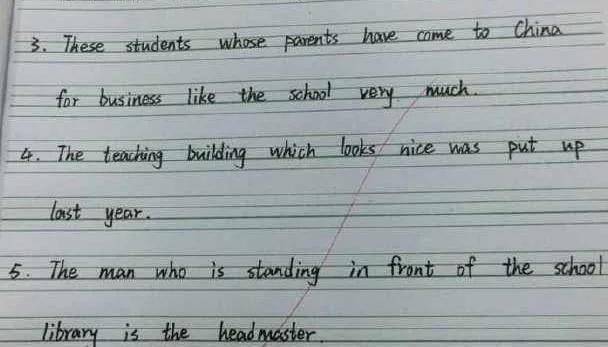 3. These students whose parents have come to China
for business like the school very much.
4. The teaching building which looks nice was put up
last year.
5. The man who is standing in front of the school
library is the headmaster.